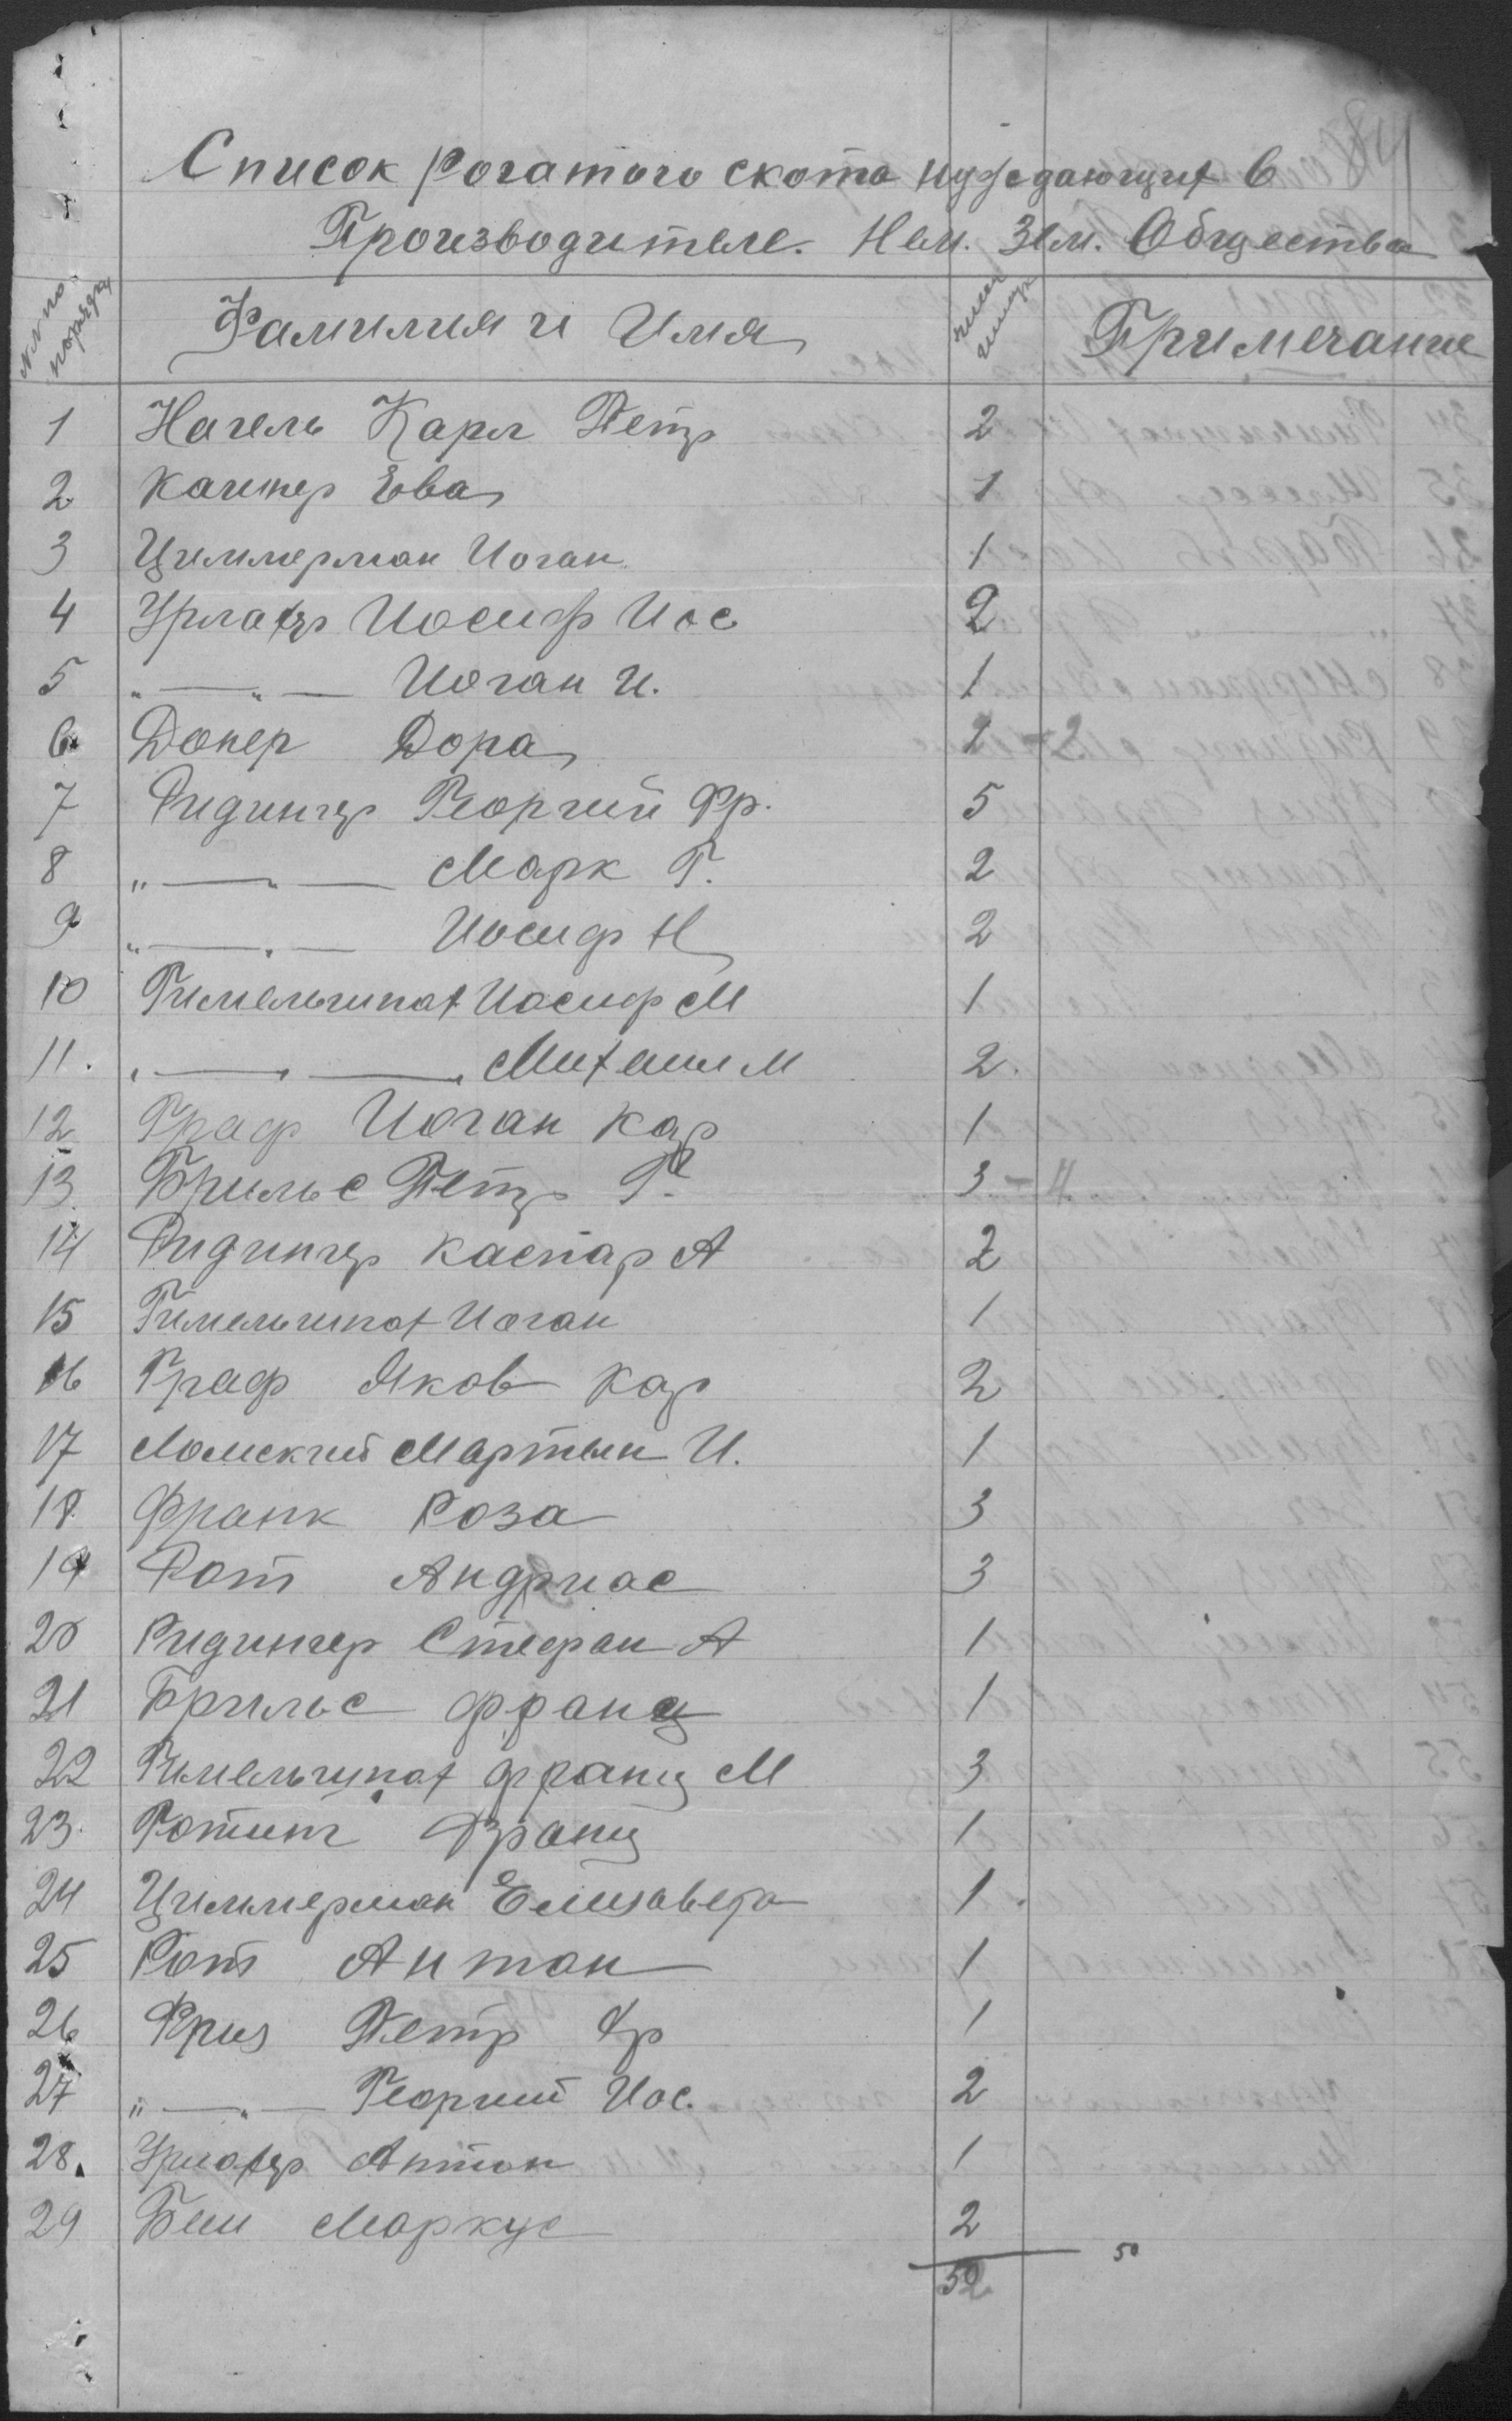 Список рогатого скота нуждающих в
Производителе. Нем. Зем. Общества
№№ по порядку Фамилия и Имя число Примечание
1 Нагель Карл Петр 2
2 Ева 1
3 Циммерман Иоган 1
4 Урлахер Иосиф Иос 2
5 „ — „ — Иоган И. 1
6 Донер Дора 2 - 2
7 Ридингер Георгий Фр. 5
8 „ — „ — Марк Г. 2
9 „ — „ — Иосиф Н 2
10 Гимельшпах Иосиф М 1
11. „ — „ — Михаил М 2.
12 Граф Иоган Кар 1
13. Брильс Петр Г. 3 - 4
14 Ридингер Каспар А 2
15 Гимельшпах Иоган 1
16 Граф Яков Кар 2
17 Ломский Мартын И. 1
18 Франк Роза 3
19 Рот Андриас 3
20 Ридингер Стефан А 1
21 Брильс Франц 1
22 Гимельшпах Франц М 3
23. Франц 1
24 Циммерман Елизавета 1.
25 Рот Антон 1
26 Фриз Петр Фр 1
27 „ — „ — Георгий Иос. 2
28. Урлахер Антон 1
29 Маркус 2
52 50